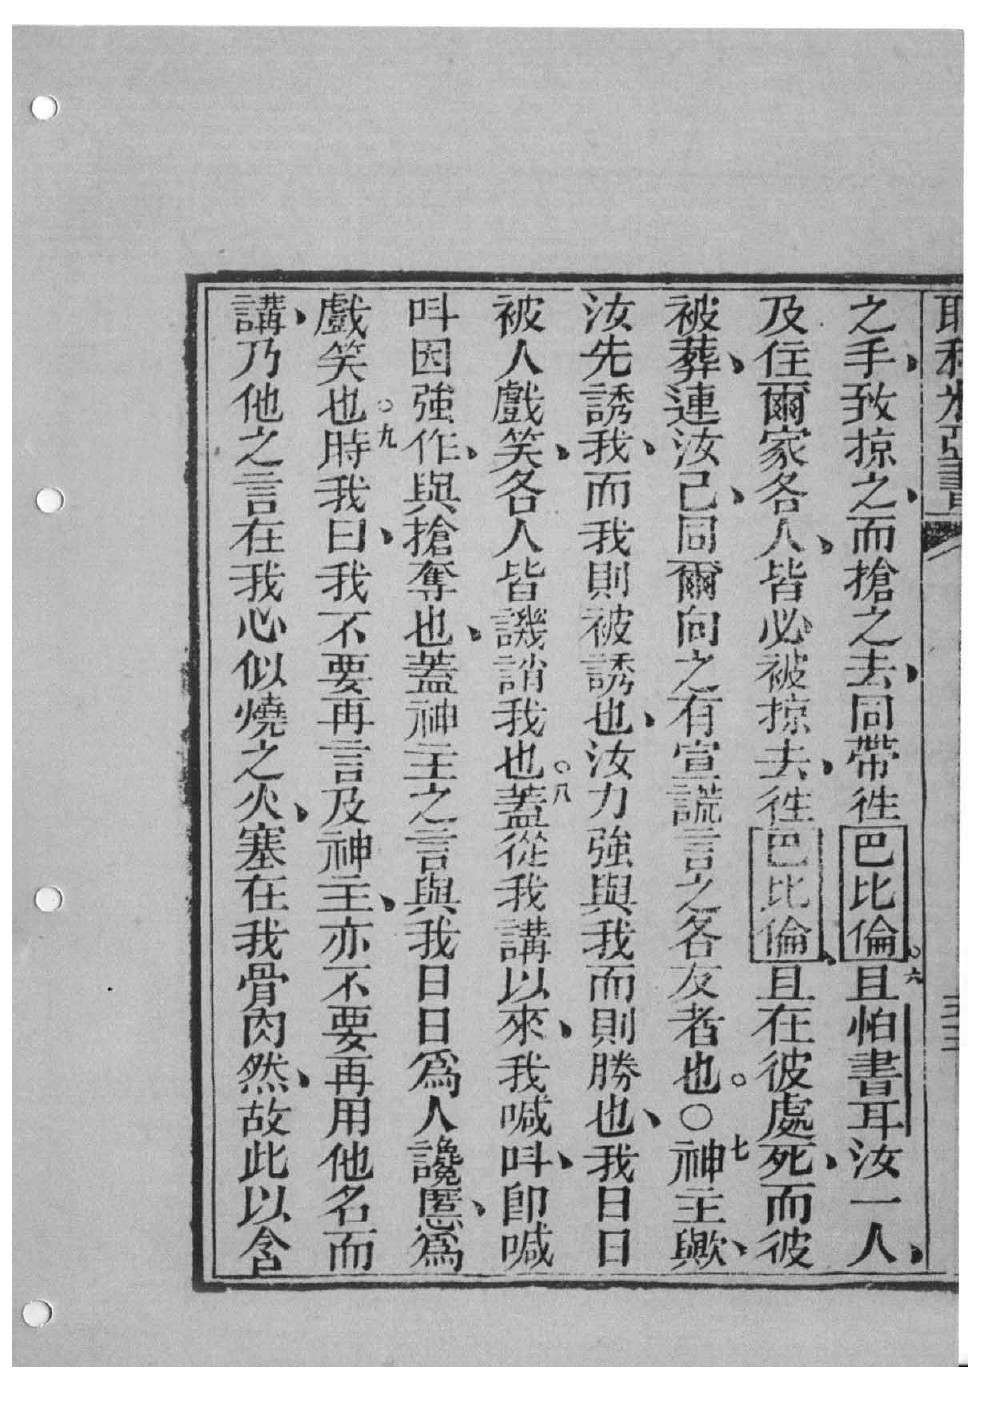 耶利米亞書
五三
之手、致掠之、而搶之去、同帶徃巴比倫。六且怕書耳汝一人、
及住爾家各人、皆必被掠去、徃巴比倫、且在彼處死、而彼
被葬、連汝己、同爾向之有宣謊言之各友者也。○七神主歟、
汝先誘我、而我則被誘也、汝力強與我而則勝也、我日日
被人戲笑、各人皆譏誚我也。八蓋從我講以來、我喊呌、卽喊
呌因強作、與搶奪也、蓋神主之言與我日日爲人讒慝、爲
戲笑也。九時我曰、我不要再言及神主、亦不要再用他名而
講、乃他之言在我心似燒之火、塞在我骨肉然、故此以含